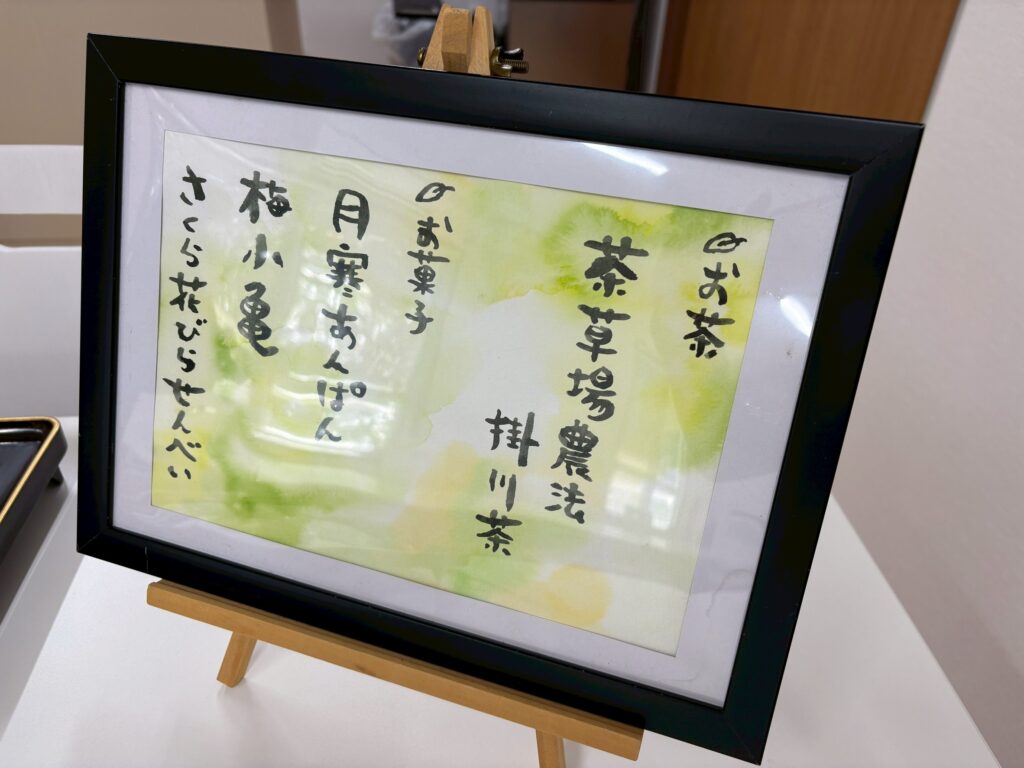 お茶
茶草場農法
掛川茶
お菓子
月寒あんぱん
梅小亀
さくら花びらせんべい